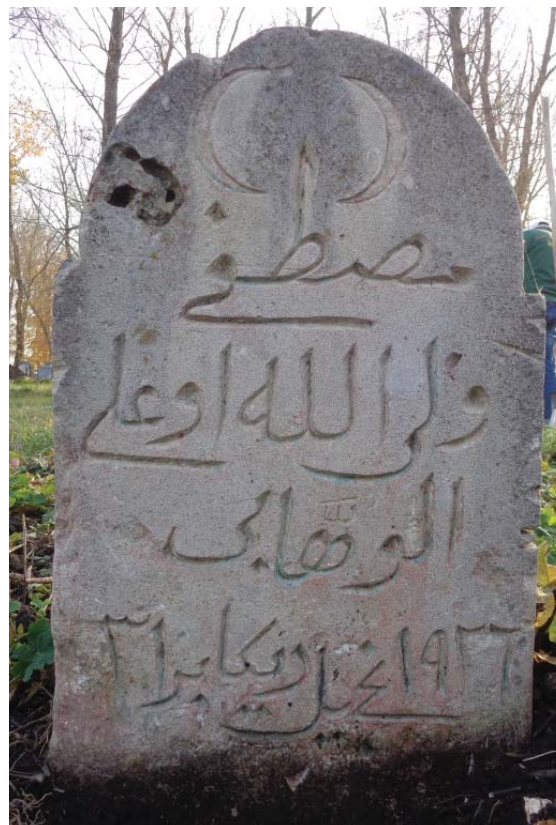 مصطفى
ولى الله اوغلى
الوهابى
١٩٢٦ نچیل دیکابر ٣١